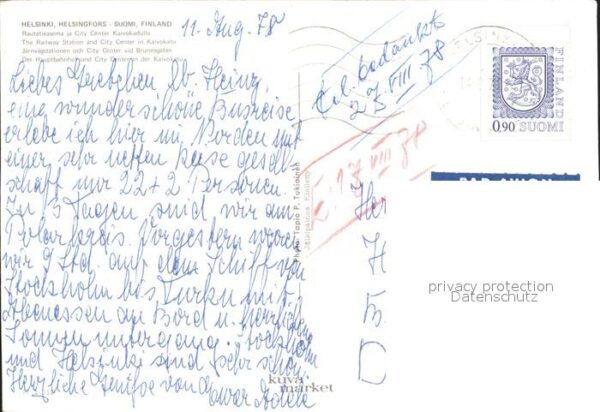 HELSINKI, HELSINGFORS - SUOMI, FINLAND
Rautatieasema ja City Center Kaivokadulla
The Railway Station and City Center in Kaivokatu
Järnvägsstationen och City Center vid Brunnsgatan
Der Hauptbahnhof und City Center an der Kaivokatu
11. Aug. 78
Liebes Gretchen lb. Heinz,
eine wunderschöne Busreise
erlebe ich hier im Norden mit
einer sehr netten Reisegesell-
schaft nur 22+2 Personen
In 5 Tagen sind wir am
Polarkreis. Vorgestern waren
wir 9 Std. auf dem Schiff von
Stockholm bis Turku mit
Abendessen an Bord u. herrlichem
Sonnenuntergang. Stockholm
und Helsinki sind sehr schön.
Herzliche Grüsse von
Adele
bedankt
27. VIII 78
17 VIII 78
Photo Tapio P. Tukiainen
FINLAND
0,90 SUOMI
PAR AVION
H
D
privacy protection
Datenschutz
kuva
market